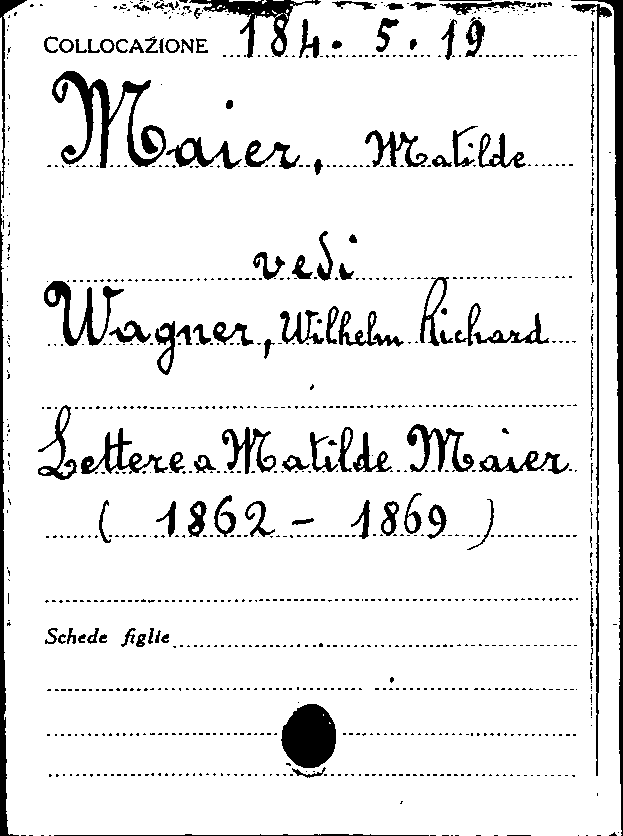 COLLOCAZIONE 184. 5. 19
Maier, Matilde
vedi
Wagner, Wilhelm Richard
Lettere a Matilde Maier
( 1862 - 1869 )
Schede figlie